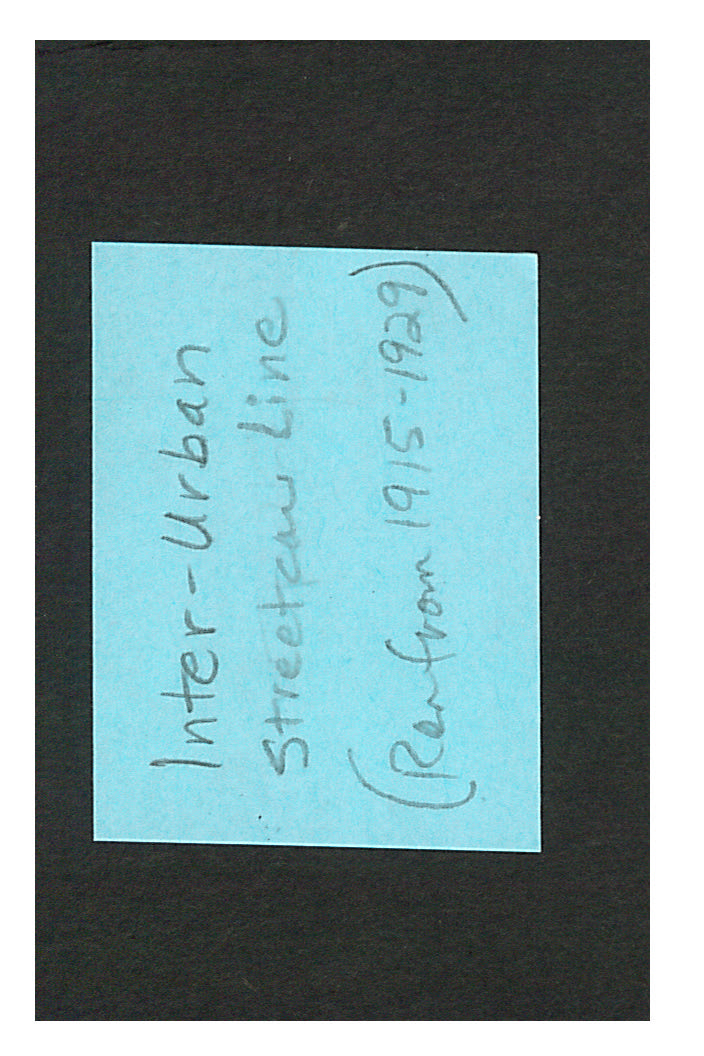 Inter-Urban
Streetcar Line
(Ran from 1915-1929)